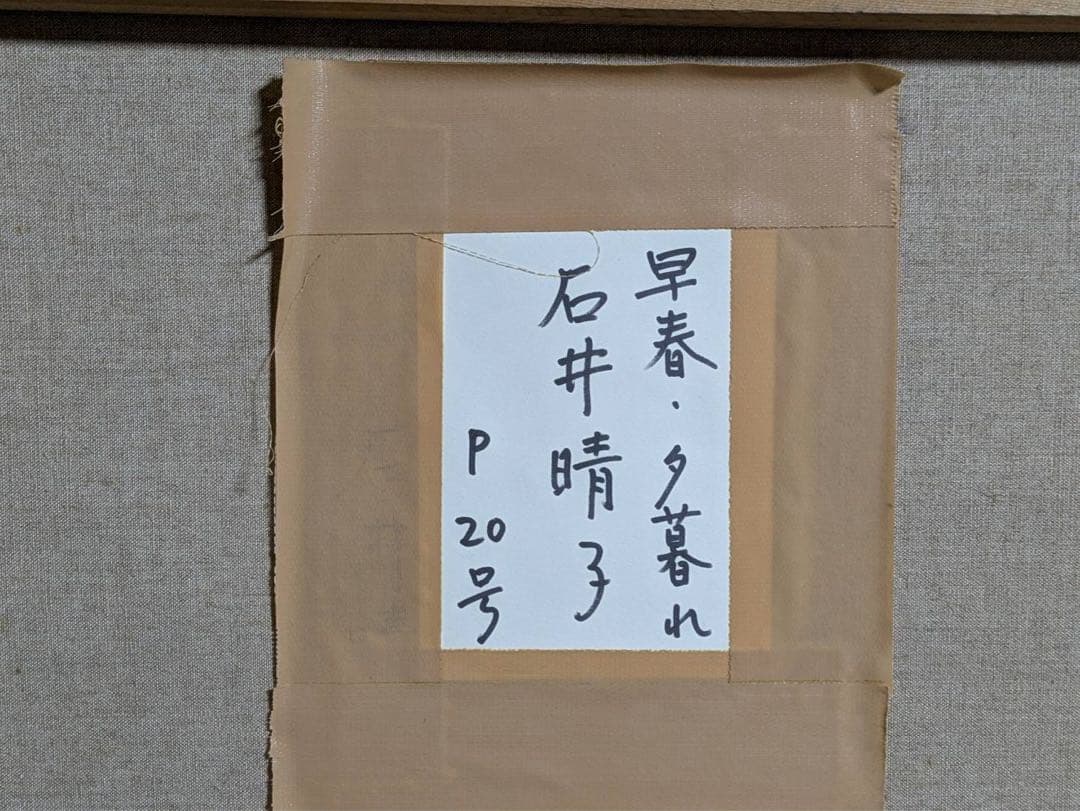 早春・夕暮れ
石井晴子
P20号